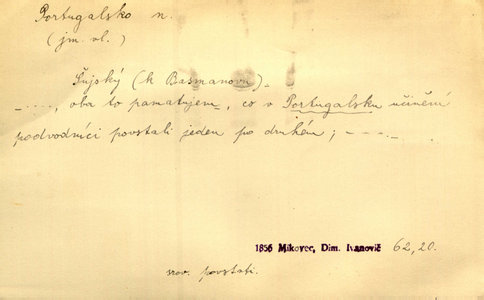 Portugalsko n.
(jm. vl.)
Šujský (k Basmanovu)
-...., oba to pamatujem, co v Portugalsku učinění
podvodníci povstali jeden po druhém; - - - . -
1856 Mikovec, Dim. Ivanovič 62,20.
srov. povstati.